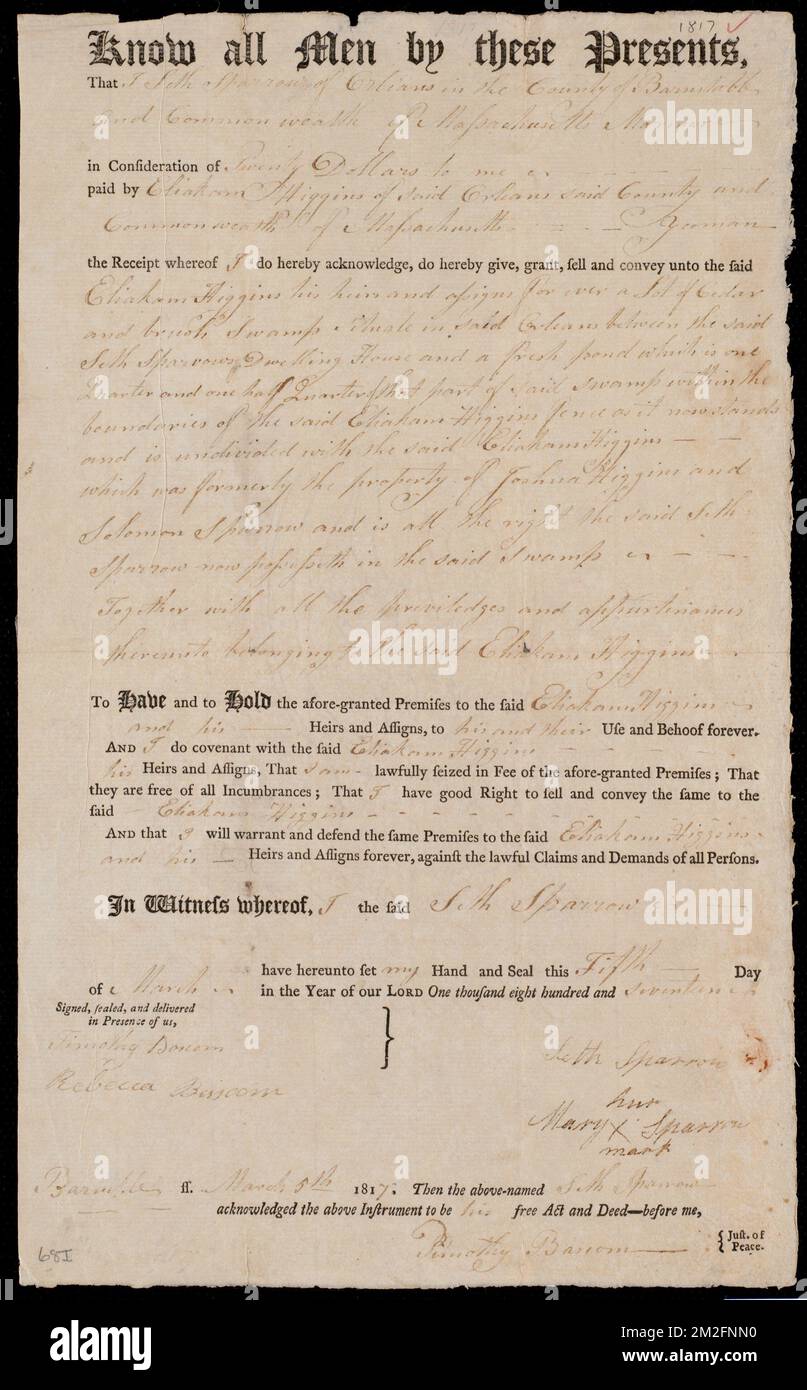 1817 ✓
Know all Men by these Presents,
That I Seth Sparrow of Orleans in the County of Barnstable
and Commonwealth of Massachusetts
in Conſideration of Twenty Dollars to me
paid by Eliakam Higgins of said Orleans said County and
Commonwealth of Massachusetts Yeoman
the Receipt whereof I do hereby acknowledge, do hereby give, grant, ſell and convey unto the ſaid
Eliakam Higgins his heirs and assigns for ever a Lot of Cedar
and brush Swamp Situate in said Orleans between the said
Seth Sparrows Dwelling House and a fresh pond which is one
Quarter and one half Quarter of that part of said swamp within the
boundaries of the said Eliakam Higgins fence as it now stands
and is undivided with the said Eliakam Higgins
which was formerly the property of Joshua Higgins and
Solomon Sparrow and is all the right the said Seth
Sparrow now posseseth in the said Swamp
Together with all the previledges and appurtinances
thereunto belonging to the said Eliakam Higgins
To Have and to Hold the afore-granted Premiſes to the ſaid Eliakam Higgins
and his Heirs and Aſſigns, to his and their Uſe and Behoof forever.
AND I do covenant with the ſaid Eliakam Higgins
his Heirs and Aſſigns, That I am lawfully ſeized in Fee of the afore-granted Premiſes; That
they are free of all Incumbrances; That I have good Right to ſell and convey the ſame to the
ſaid Eliakam Higgins
AND that I will warrant and defend the ſame Premiſes to the ſaid Eliakam Higgins
and his Heirs and Aſſigns forever, againſt the lawful Claims and Demands of all Perſons.
In Witneſs whereof, I the ſaid Seth Sparrow
have hereunto ſet my Hand and Seal this Fifth Day
of March in the Year of our LORD One thouſand eight hundred and seventeen
Signed, ſealed, and delivered
in Preſence of us,
Timothy Bascom
Rebecca Bascom
Seth Sparrow
hur
Mary X Sparrow
mark
ſſ. March 5th 1817. Then the above-named Seth Sparrow
acknowledged the above Inſtrument to be his free Act and Deed—before me,
Timothy Bascom { Juſt. of
Peace.
68I
alamy
Image ID: 2M2FNN0
www.alamy.com